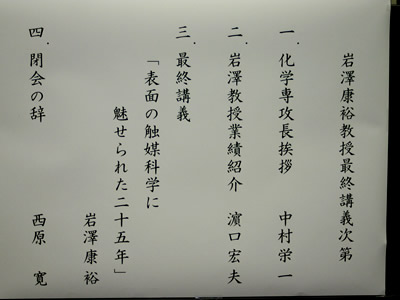 岩澤康裕教授最終講義次第
一．化学専攻長挨拶　中村栄一
二．岩澤教授業績紹介　濵口宏夫
三．最終講義
「表面の触媒科学に
魅せられた二十五年」
岩澤康裕
四．閉会の辞　西原　寛